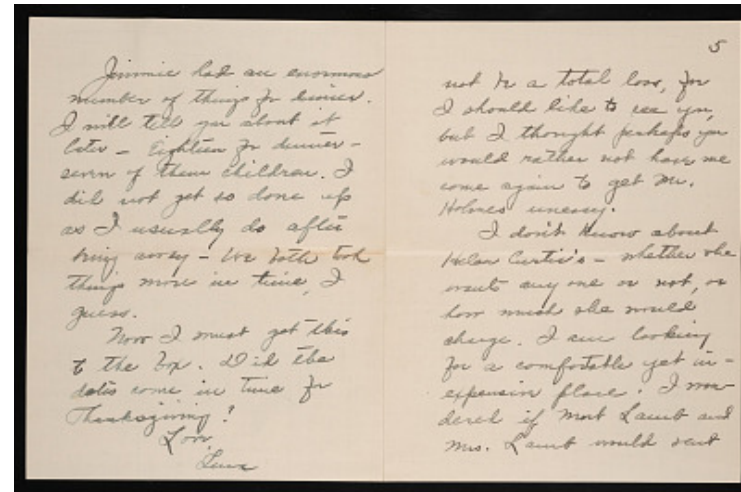 Jimmie had an enormous
number of things for dinner.
I will tell you about it
later - Eighteen for dinner -
seven of them children. I
did not get so done up
as I usually do after
being away - We both took
things more in time, I
guess.
Now I must get this
to the box. Did the
dates come in time for
Thanksgiving?
Love,
5
not be a total loss, for
I should like to see you,
but I thought perhaps you
would rather not have me
come again to get Mr.
Holmes uneasy.
I don't know about
Helen Curtis's - whether she
wants any one or not, or
how much she would
charge. I am looking
for a comfortable yet in-
expensive place. I won-
dered if Mort Lamb and
Mrs. Lamb would rent